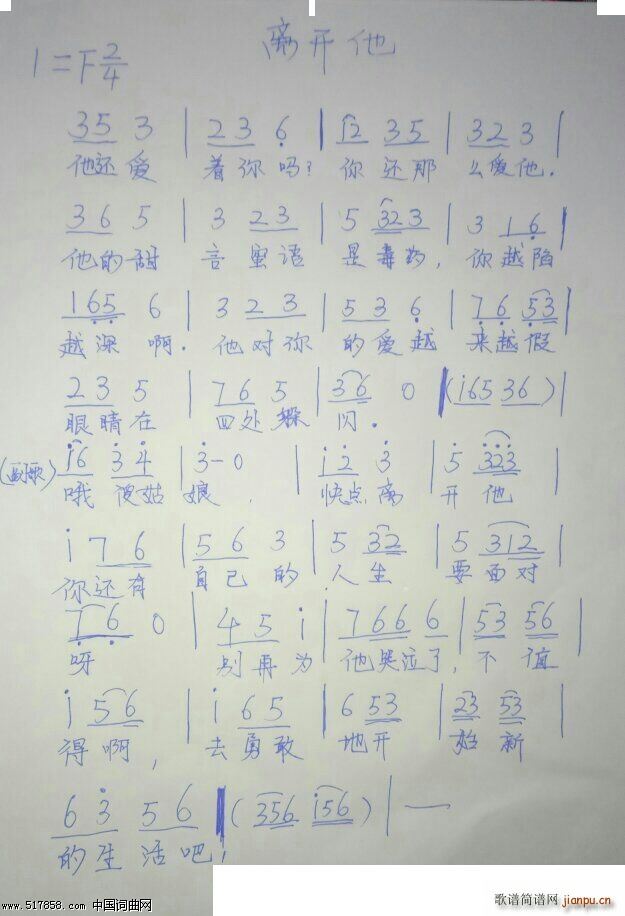 离开他
1=F 2/4
35 3 | 2 3 6̣ | i2 35 | 32 3 |
他还爱 着你吗? 你还那 么爱他.
3 6 5 | 3 2 3 | 5 32 3 | 3 1 6̣ |
他的甜 言蜜语 是毒药, 你越陷
16̣5̣ 6 | 3 2 3 | 5 3 6̣ | 7̣ 6̣ 53 |
越深啊. 他对你 的爱越 来越假
2 3 5 | 7 6 5 | 36 0 | (i65 36) |
眼睛在 四处躲 闪.
(副歌) i6 3̇ 4̇ | 3̇ - 0 | i 2̇ 3̇ | 5̇ 3̇2̇3̇ |
哦 傻姑 娘, 快点离 开他
i 7 6 | 5 6 3 | 5 32 | 5 312 |
你还有 自己的 人生 要面对
7̣6̣ 0 | 4 5 i | 766 6 | 53 56 |
呀 别再为 他哭泣了, 不值
i 56 | i 6 5 | 6 53 | 23 53 |
得啊, 去勇敢 地开 始新
6 3̇ 5 6 | (356 i56) | —
的生活吧,
www.517858.com 中国词曲网
歌谱简谱网 jianpu.cn